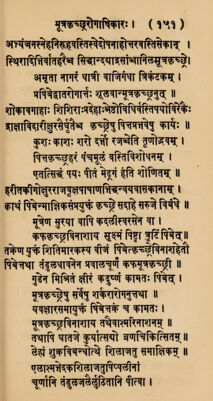 मूत्रकृच्छ्ररोगाधिकारः । (१५१)
अभ्यंजनस्नेहनिरूहवस्तिस्वेदोपनाहोत्तरवस्तिसेकान् ।
स्थिरादिभिर्वातहरैश्च सिद्धान्दद्याद्रसांश्चानिलमूत्रकृच्छ्रे।
अमृता नागरं धात्री वाजिगंधा त्रिकंटकम् ।
प्रपिबेद्वातरोगार्त्तः शूलवान्मूत्रकृच्छ्रनुत् ॥
शोकावगाहाः शिशिराःप्रदेहाःग्रैष्मोविधिर्वस्तिपयोविरेकैः
द्राक्षाविदारीक्षुरसैर्घृतैश्च कृच्छ्रेषु पित्तप्रभवेषु कार्यः ॥
कुशः काशः शरो दर्भो रजश्चेति तृणोद्भवम् ।
पित्तकृच्छ्रहरं पंचमूलं वस्तिविशोधनम् ।
एतत्सिद्धं पयः पीतं मेढ्रगं हंति शोणितम् ॥
हरीतकीगोक्षुरराजवृक्षपाषाणभिद्धन्वयवासकानाम् ।
क्वाथं पिबेन्माक्षिकसंप्रयुक्तं कृच्छ्रे सदाहे सरुजे विबंधे ॥
मूत्रेण सुरया वापि कदलीस्वरसेन वा ।
कफकृच्छ्रविनाशाय सूक्ष्मं पिष्ट्वा त्रुटिं पिबेत् ॥
तक्रेण युक्तं शितिमारकस्य बीजं पिबेत्कृच्छ्रविनाशहेतोः
पिबेत्तथा तंडुलधावनेन प्रवालचूर्णं कफमूत्रकृच्छ्री ॥
गुडेन मिश्रितं क्षीरं कदुष्णं कामतः पिबेत् ।
मूत्रकृच्छ्रेषु सर्वेषु शर्करारोगनुत्तथा ॥
यवक्षारसमायुक्तं पिबेत्तक्रं च कामतः ।
मूत्रकृच्छ्रविनाशाय तथैवाश्मरिनाशनम् ॥
तथापि घातजे कुर्यात्सर्वां व्रणचिकित्सितम् ॥
लेह्यं शुक्रविबन्धोत्थे शिलाजतु समाक्षिकम् ॥
एलाश्मभेदकशिलाजतुपिप्पलीनां
चूर्णानि तंदुलजलैर्लुठितानि पीत्वा ।